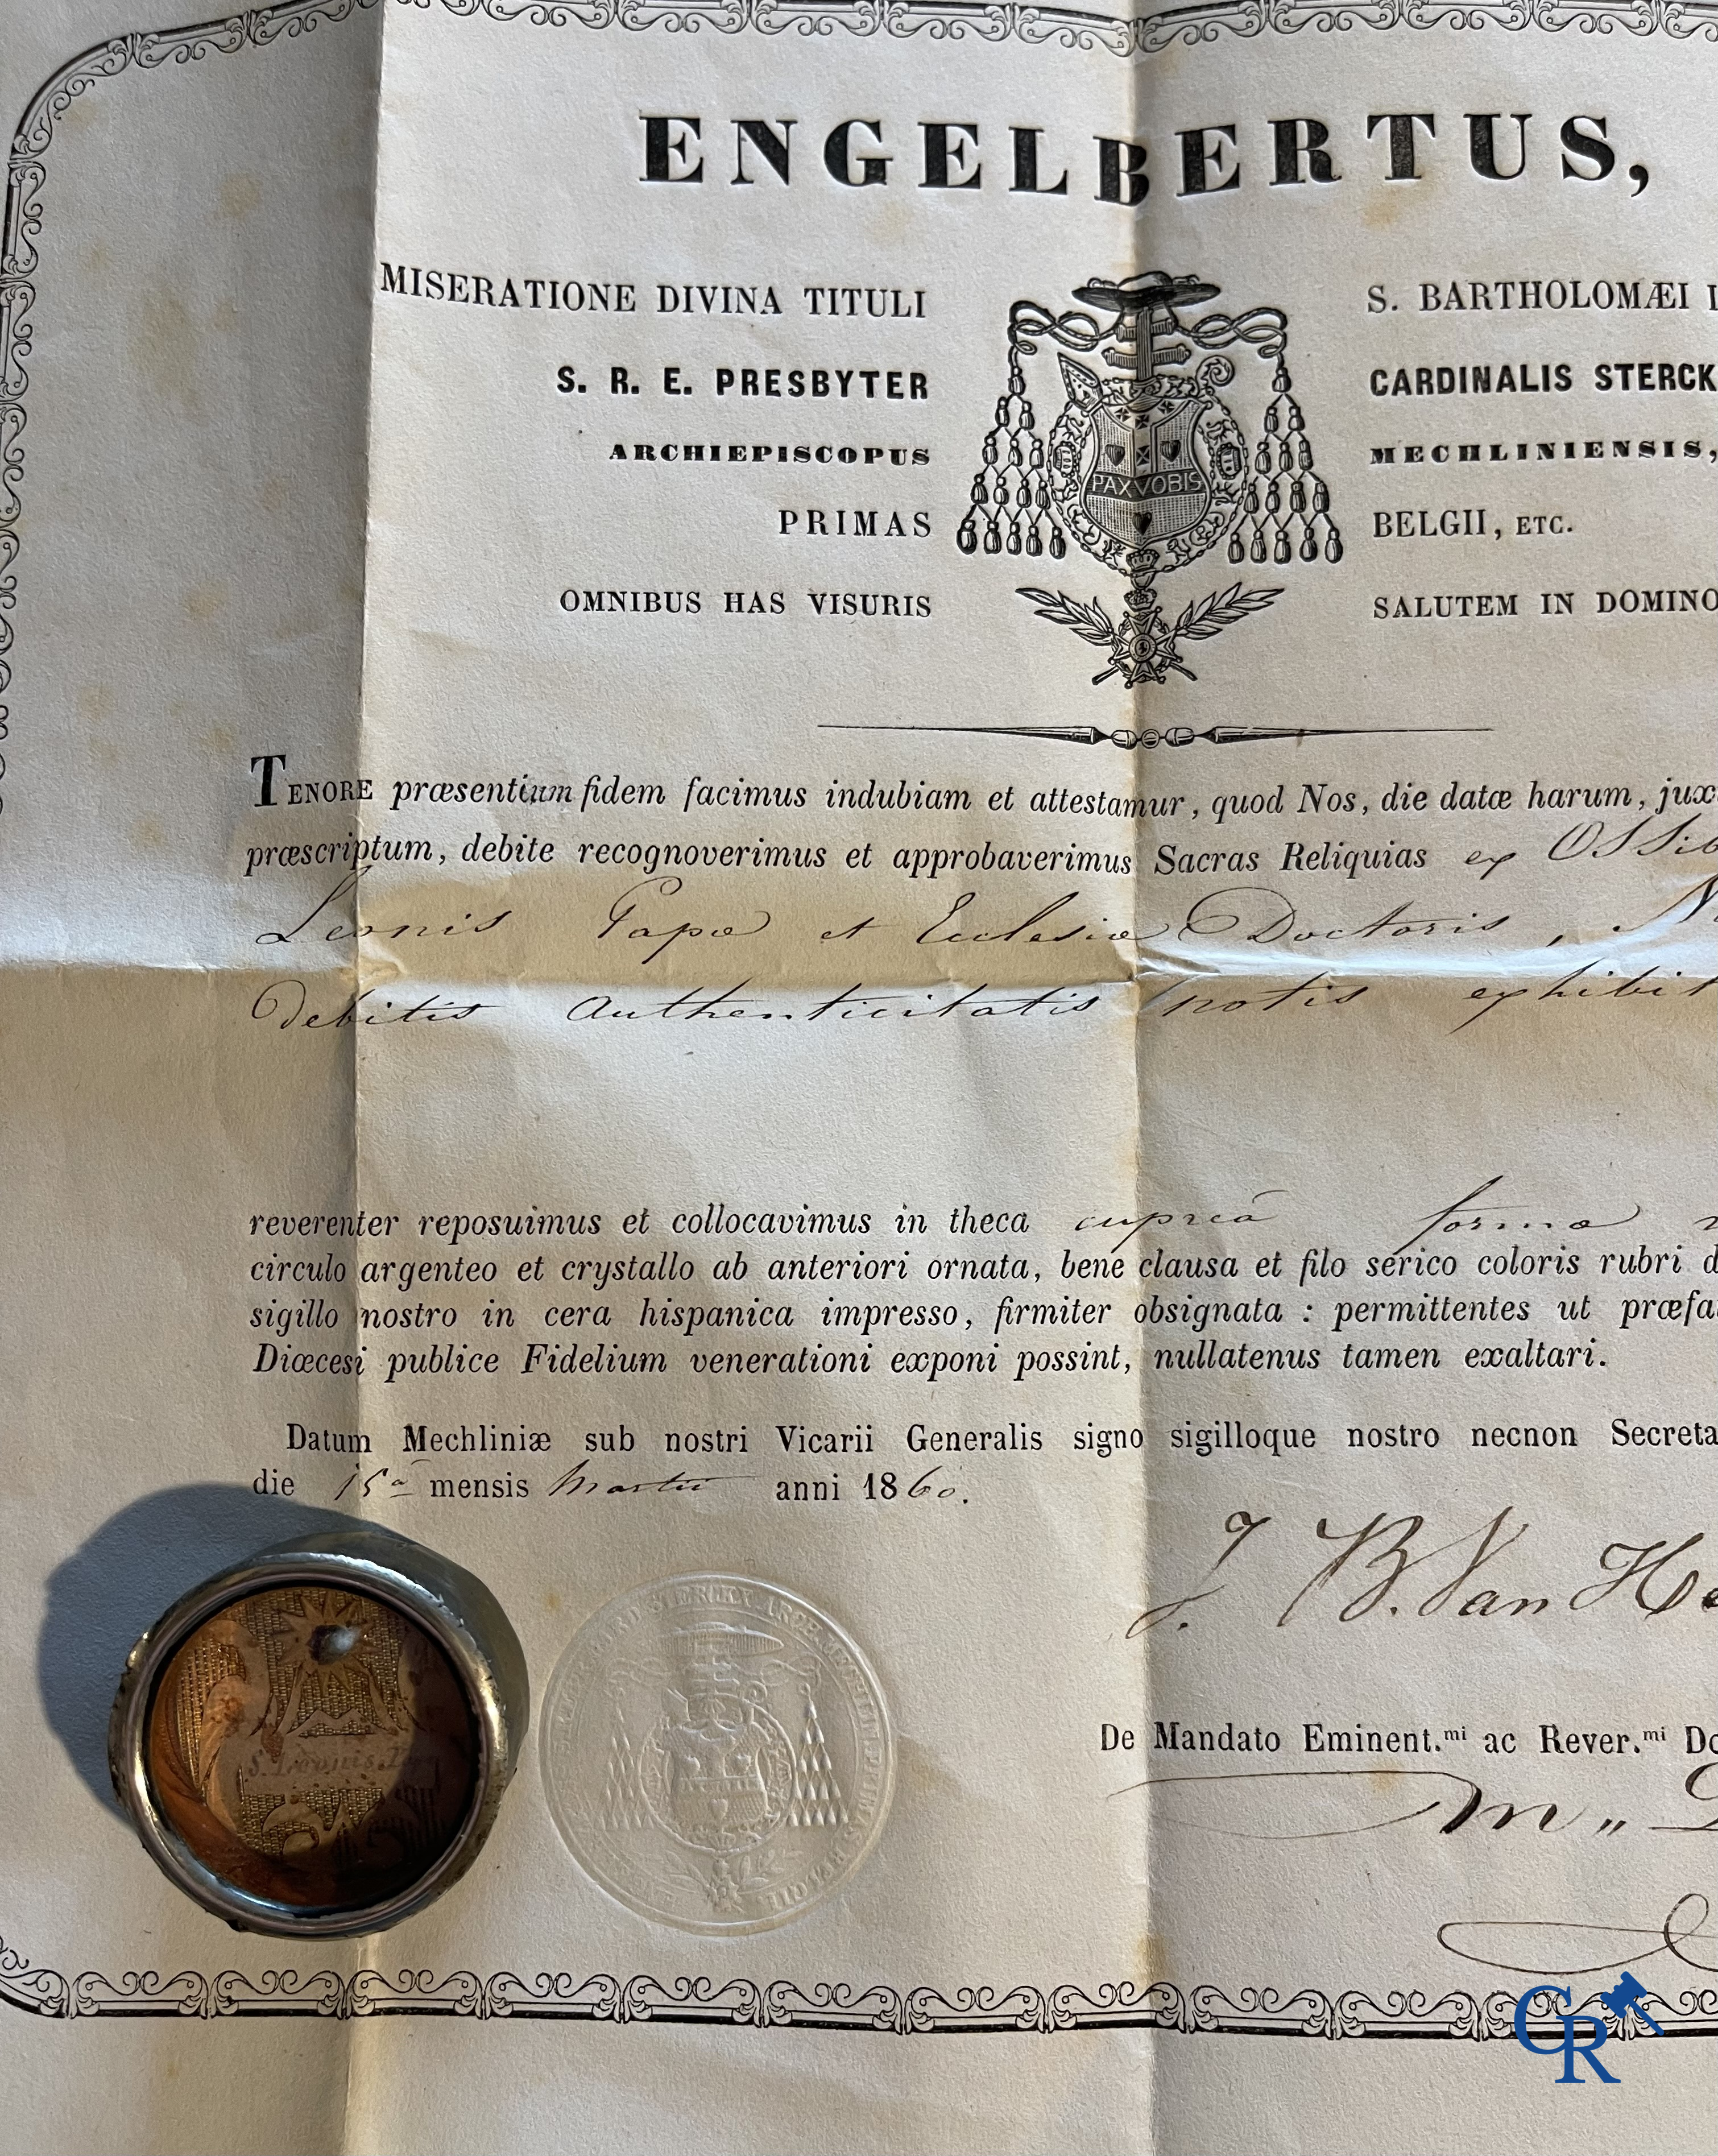 ENGELBERTUS,
MISERATIONE DIVINA TITULI S. BARTHOLOMÆI
S. R. E. PRESBYTER CARDINALIS STERCK
ARCHIEPISCOPUS MECHLINIENSIS,
PAX VOBIS
PRIMAS BELGII, ETC.
OMNIBUS HAS VISURIS SALUTEM IN DOMINO
TENORE præsentium fidem facimus indubiam et attestamur, quod Nos, die datæ harum, jux
præscriptum, debite recognoverimus et approbaverimus Sacras Reliquias ex Ossib
Leonis Papæ et Ecclesiæ Doctoris,
Debitis authenticitatis notis exhibit
reverenter reposuimus et collocavimus in theca cupreâ formæ
circulo argenteo et crystallo ab anteriori ornata, bene clausa et filo serico coloris rubri
sigillo nostro in cera hispanica impresso, firmiter obsignata : permittentes ut præfa
Diœcesi publice Fidelium venerationi exponi possint, nullatenus tamen exaltari.
Datum Mechliniæ sub nostri Vicarii Generalis signo sigilloque nostro necnon Secreta
die 15â mensis Martii anni 1860.
J. B. Van He
S. Leonis
De Mandato Eminent.mi ac Rever.mi Do
CR